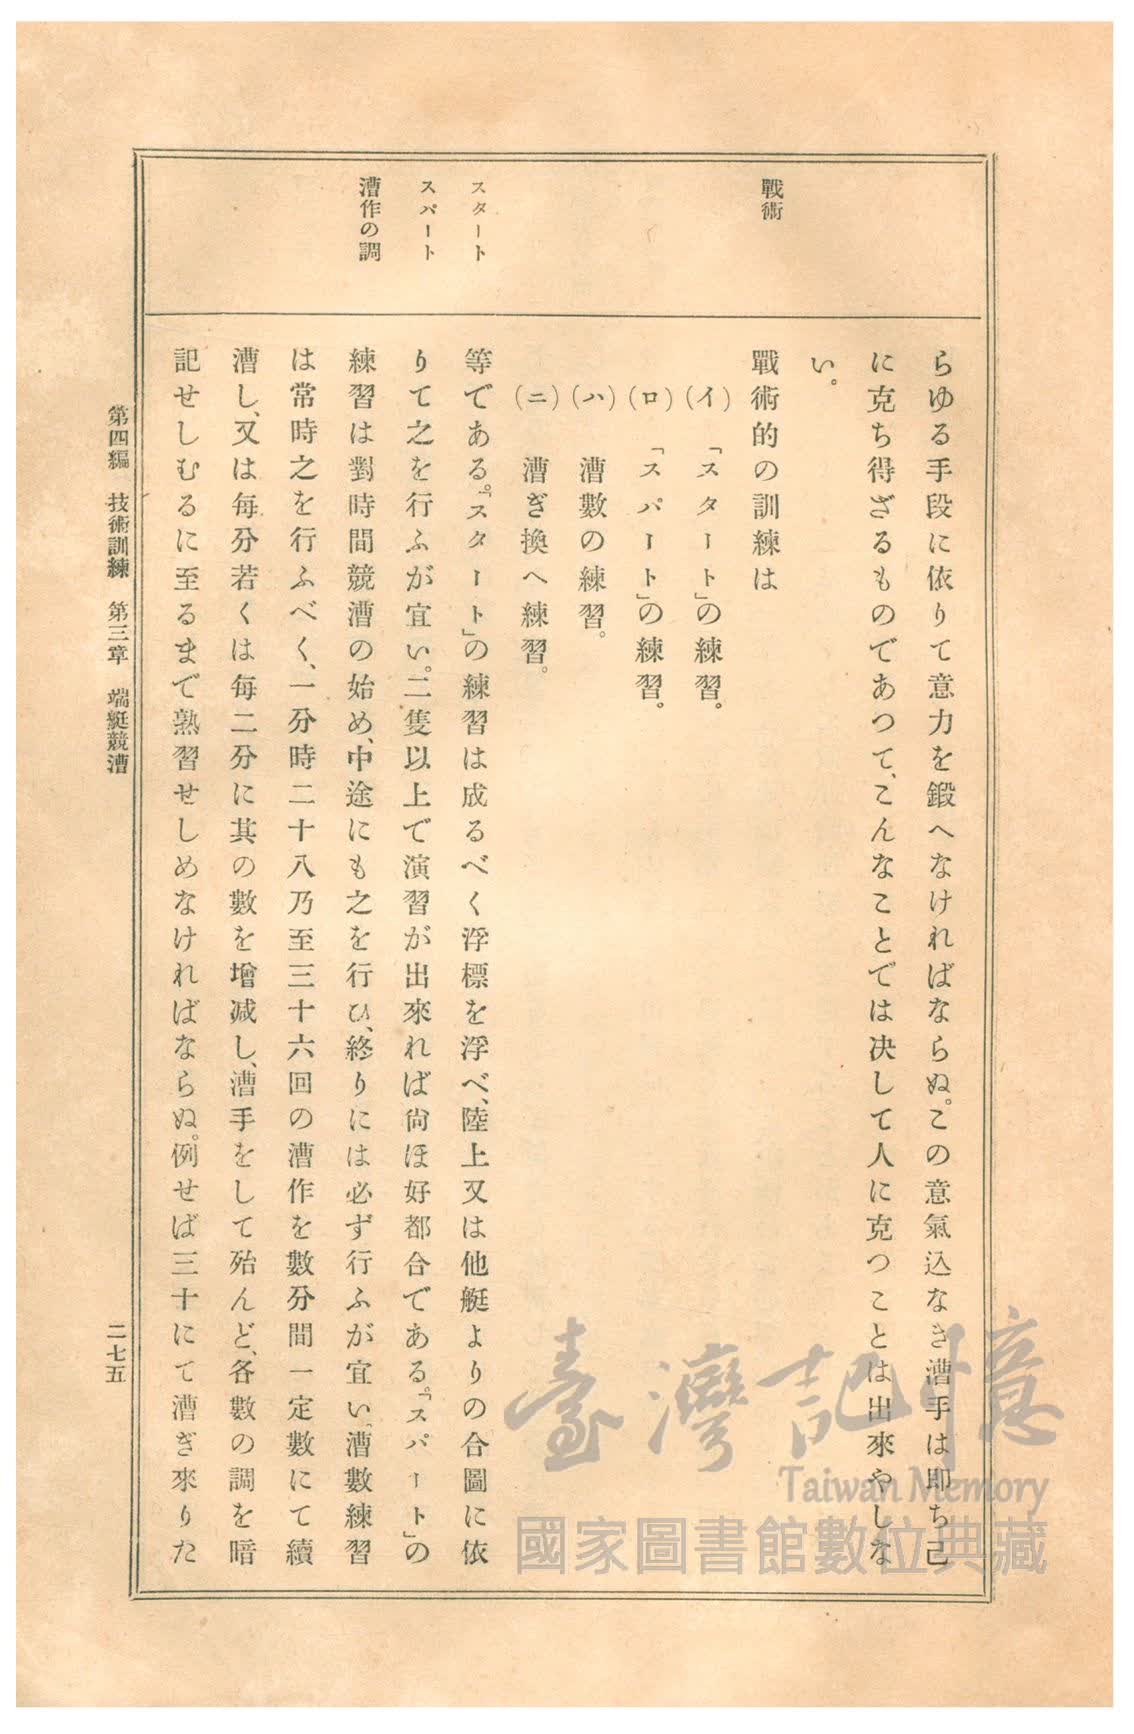 戰術
スタート
スパート
漕作の調
らゆる手段に依りて意力を鍛へなければならぬ。この意氣込なき漕手は即ち己
に克ち得ざるものであつて、こんなことでは決して人に克つことは出來やしな
い。
戰術的の訓練は
(イ)「スタート」の練習。
(ロ)「スパート」の練習。
(ハ) 漕數の練習。
(ニ) 漕ぎ換へ練習。
等である。「スタート」の練習は成るべく浮標を浮べ、陸上又は他艇よりの合圖に依
りて之を行ふが宜い。二隻以上で演習が出來れば尙ほ好都合である。「スパート」の
練習は對時間競漕の始め、中途にも之を行ひ、終りには必ず行ふが宜い「漕數練習
は常時之を行ふべく、一分時二十八乃至三十六回の漕作を數分間一定數にて續
漕し、又は每分若くは每二分に其の數を增減し、漕手をして殆んど、各數の調を暗
記せしむるに至るまで熟習せしめなければならぬ。例せば三十にて漕ぎ來りた
第四編 技術訓練 第三章 端艇競漕
二七五
臺灣記憶
Taiwan Memory
國家圖書館數位典藏